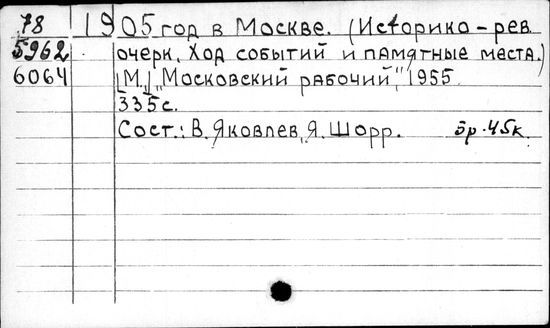 78 1905 год в Москве. (Историко-рев
5962 очерк. Ход событий и памятные места.)
6064 [М.] "Московский рабочий", 1955
335с.
Сост.: В. Яковлев, Я. Шорр. 5р.45к.